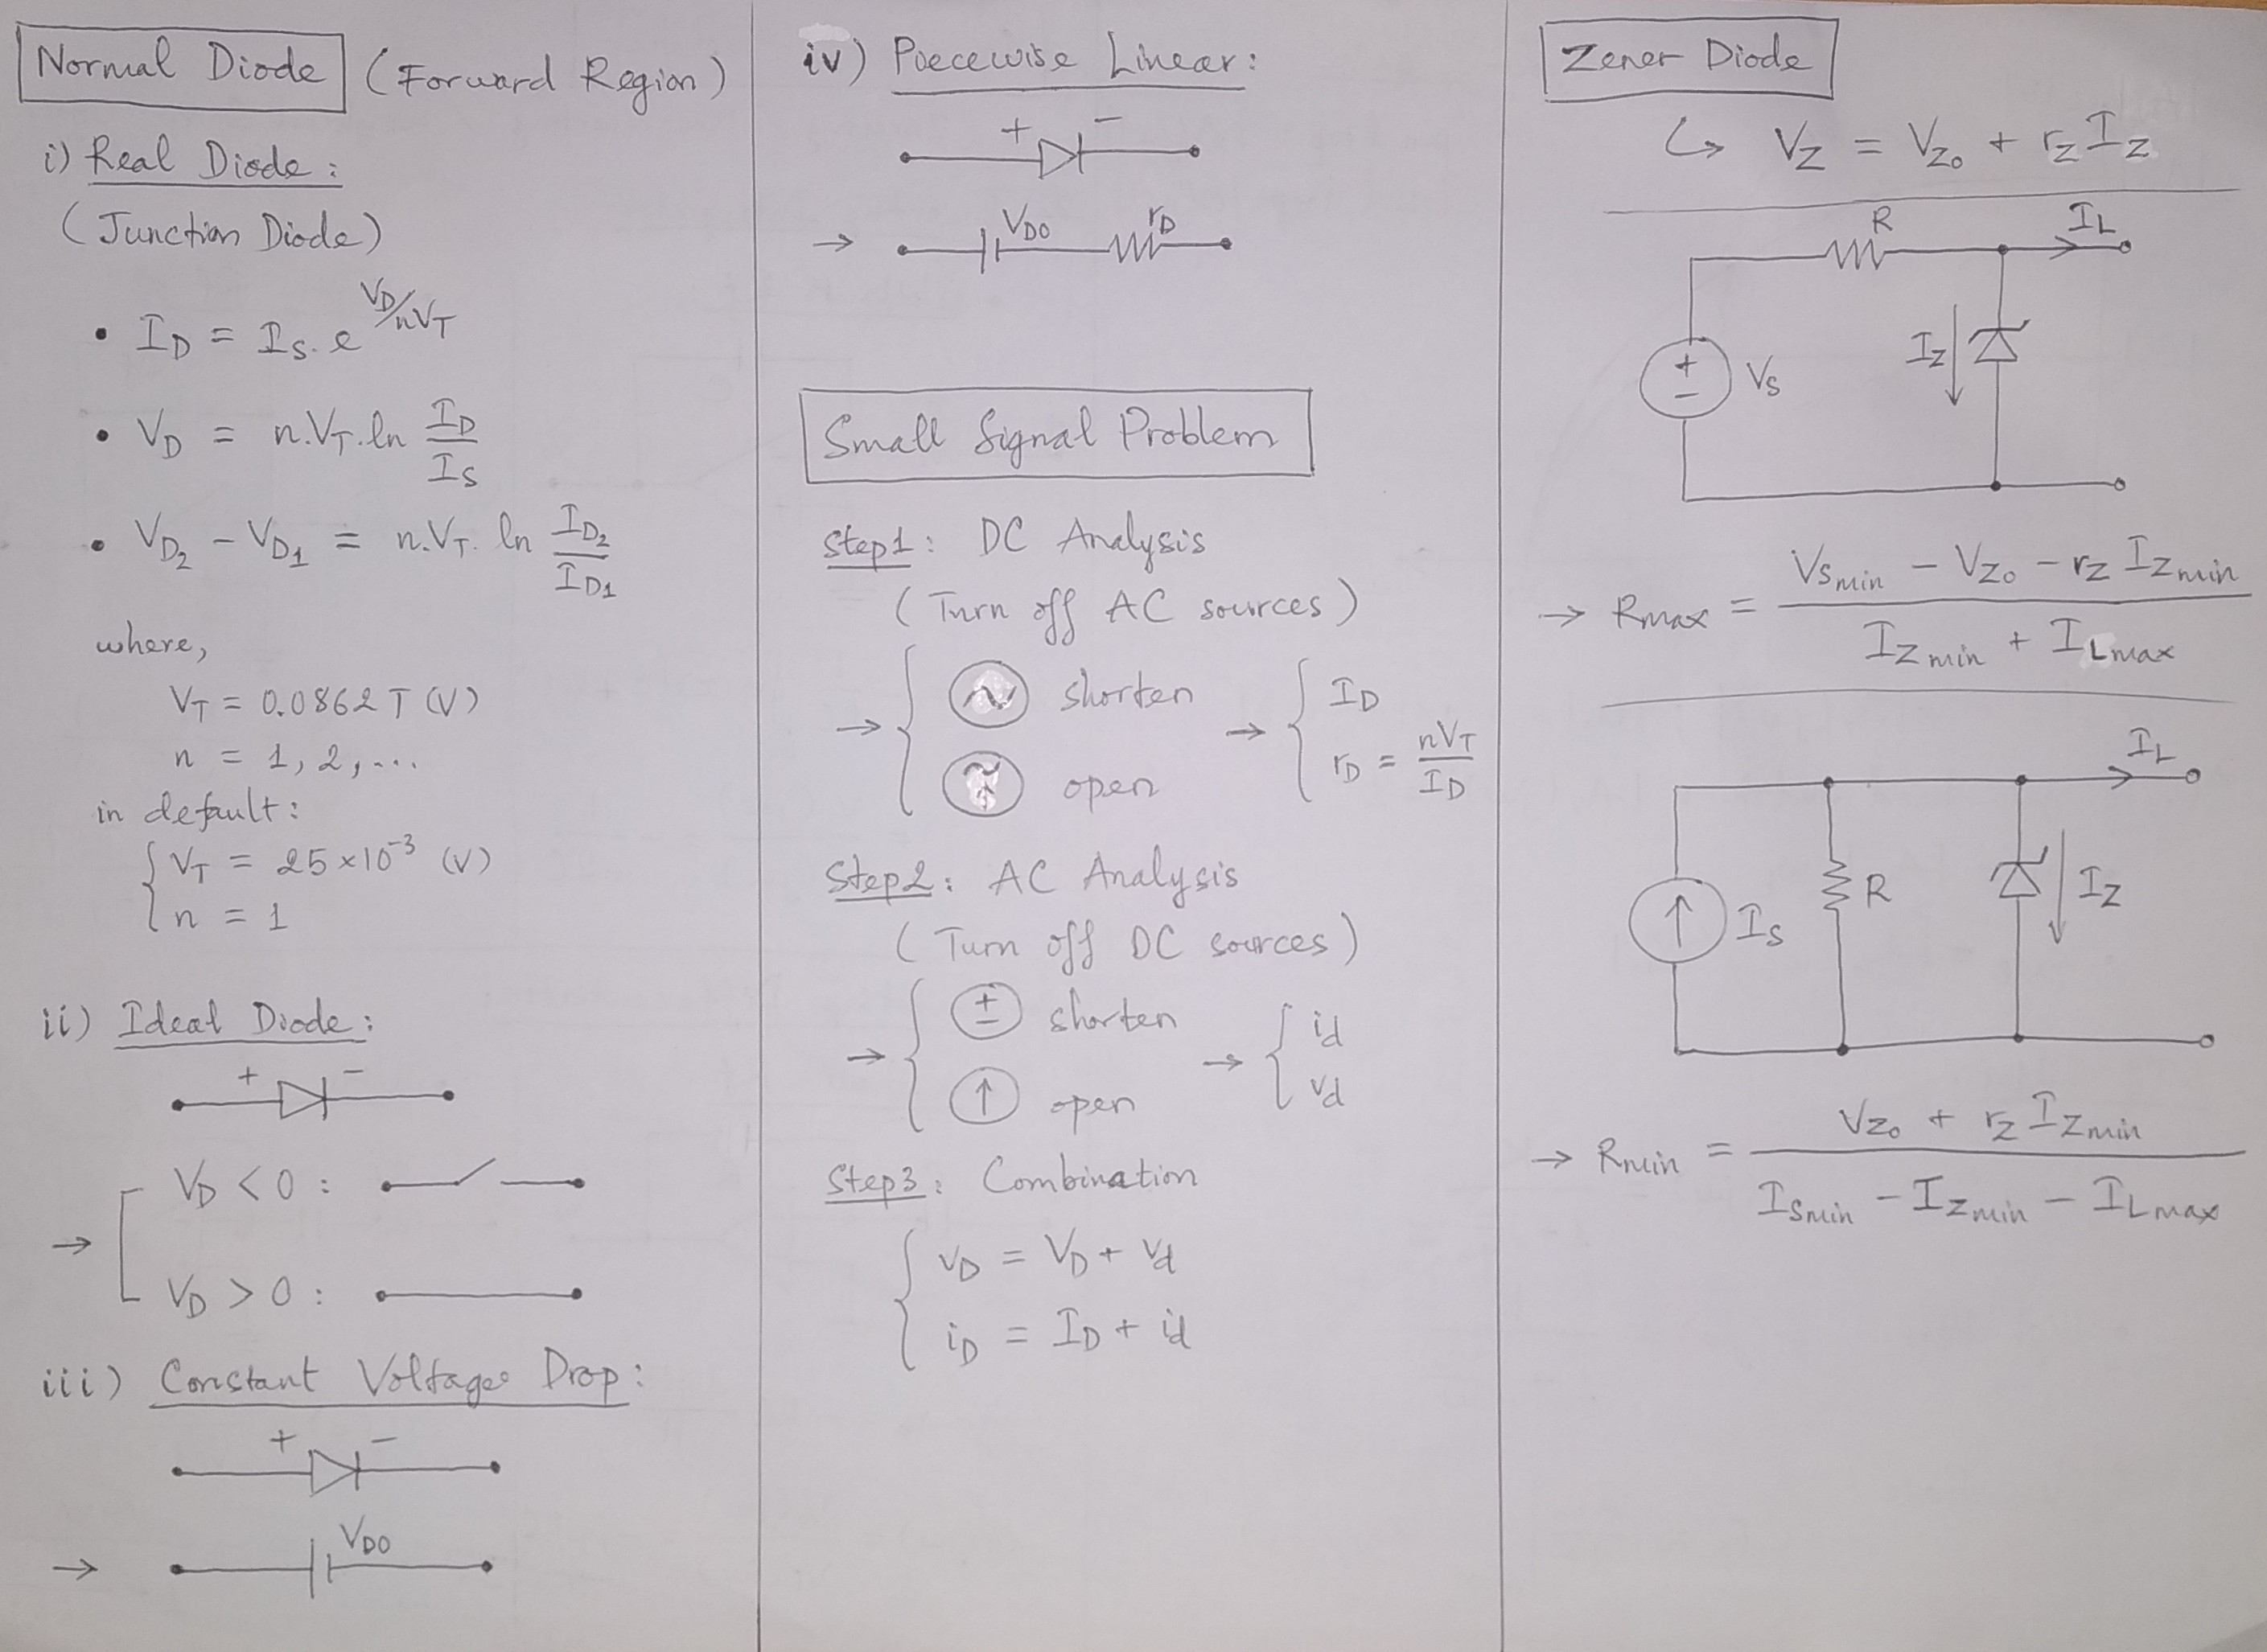 Normal Diode (Forward Region)
i) Real Diode:
(Junction Diode)
• I_D = I_S . e^(V_D/nV_T)
• V_D = n.V_T.ln I_D/I_S
• V_D2 - V_D1 = n.V_T. ln I_D2/I_D1
where,
V_T = 0.0862 T (V)
n = 1, 2, ...
in default:
V_T = 25 × 10^-3 (V)
n = 1
ii) Ideal Diode:
+ -
→ V_D < 0 :
V_D > 0 :
iii) Constant Voltage Drop:
+ -
→ V_DO
iv) Piecewise Linear:
+ -
→ V_DO r_D
Small Signal Problem
Step1: DC Analysis
(Turn off AC sources)
→ { ~ shorten → { I_D
open r_D = nV_T/I_D
Step2: AC Analysis
(Turn off DC sources)
→ { ± shorten → { i_d
↑ open v_d
Step3: Combination
v_D = V_D + v_d
i_D = I_D + i_d
Zener Diode
↪ V_Z = V_Zo + r_Z I_Z
R I_L
I_Z
+ - V_S
→ Rmax = (V_Smin - V_Zo - r_Z I_Zmin)/(I_Zmin + I_Lmax)
I_L
↑ I_S R I_Z
→ Rmin = (V_Zo + r_Z I_Zmin)/(I_Smin - I_Zmin - I_Lmax)